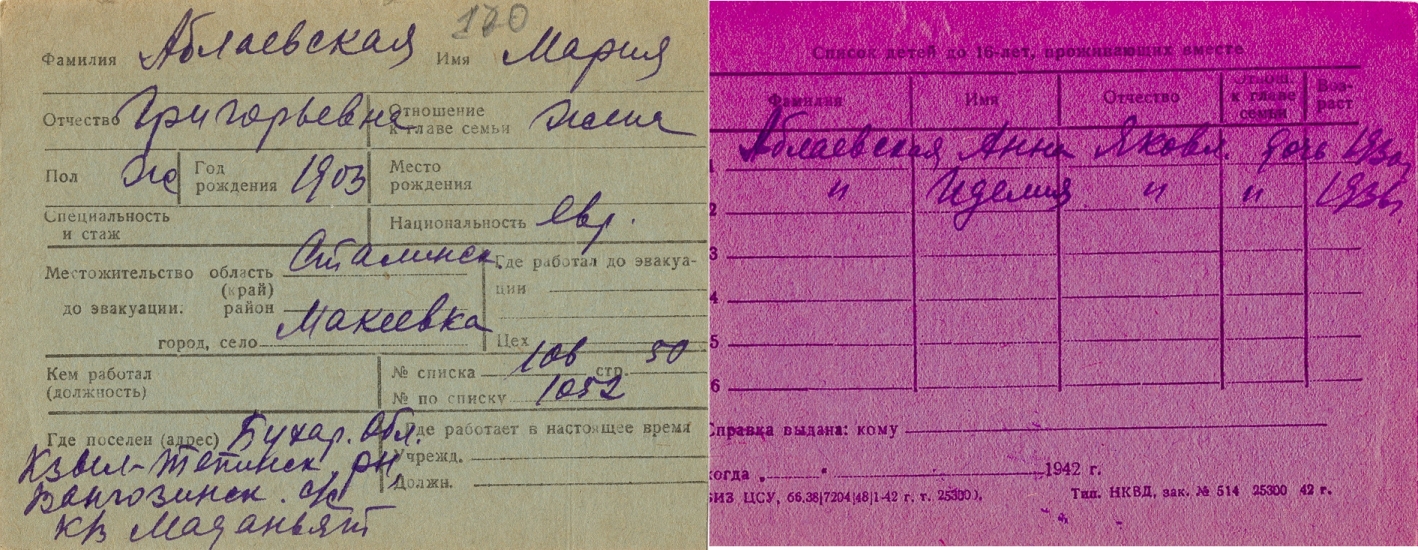 120
Фамилия Аблаевская Имя Мария
Отчество Григорьевна Отношение к главе семьи жена
Пол Ж Год рождения 1903 Место рождения
Специальность и стаж Национальность Евр.
Местожительство до эвакуации. область (край) Сталинск Где работал до эвакуа-
ции
район
город, село Макеевка Цех
Кем работал (должность) № списка 106 стр. 50
№ по списку 1052
Где поселен (адрес) Бухар. Обл. Где работает в настоящее время
Кзыл-Тепинск. рн. Учрежд.
с/с Должн.
кв
Список детей до 16-лет, проживающих вместе
Фамилия Имя Отчество Отнош. к главе семьи Воз-
раст
1 Аблаевская Анна Яковл. дочь
2 " " "
3
4
5
6
Справка выдана: кому
когда 1942 г.
БИЗ ЦСУ, 66.38|7204|48|1-42 г. т. 25300). Тип. НКВД, зак. № 514 25300 42 г.